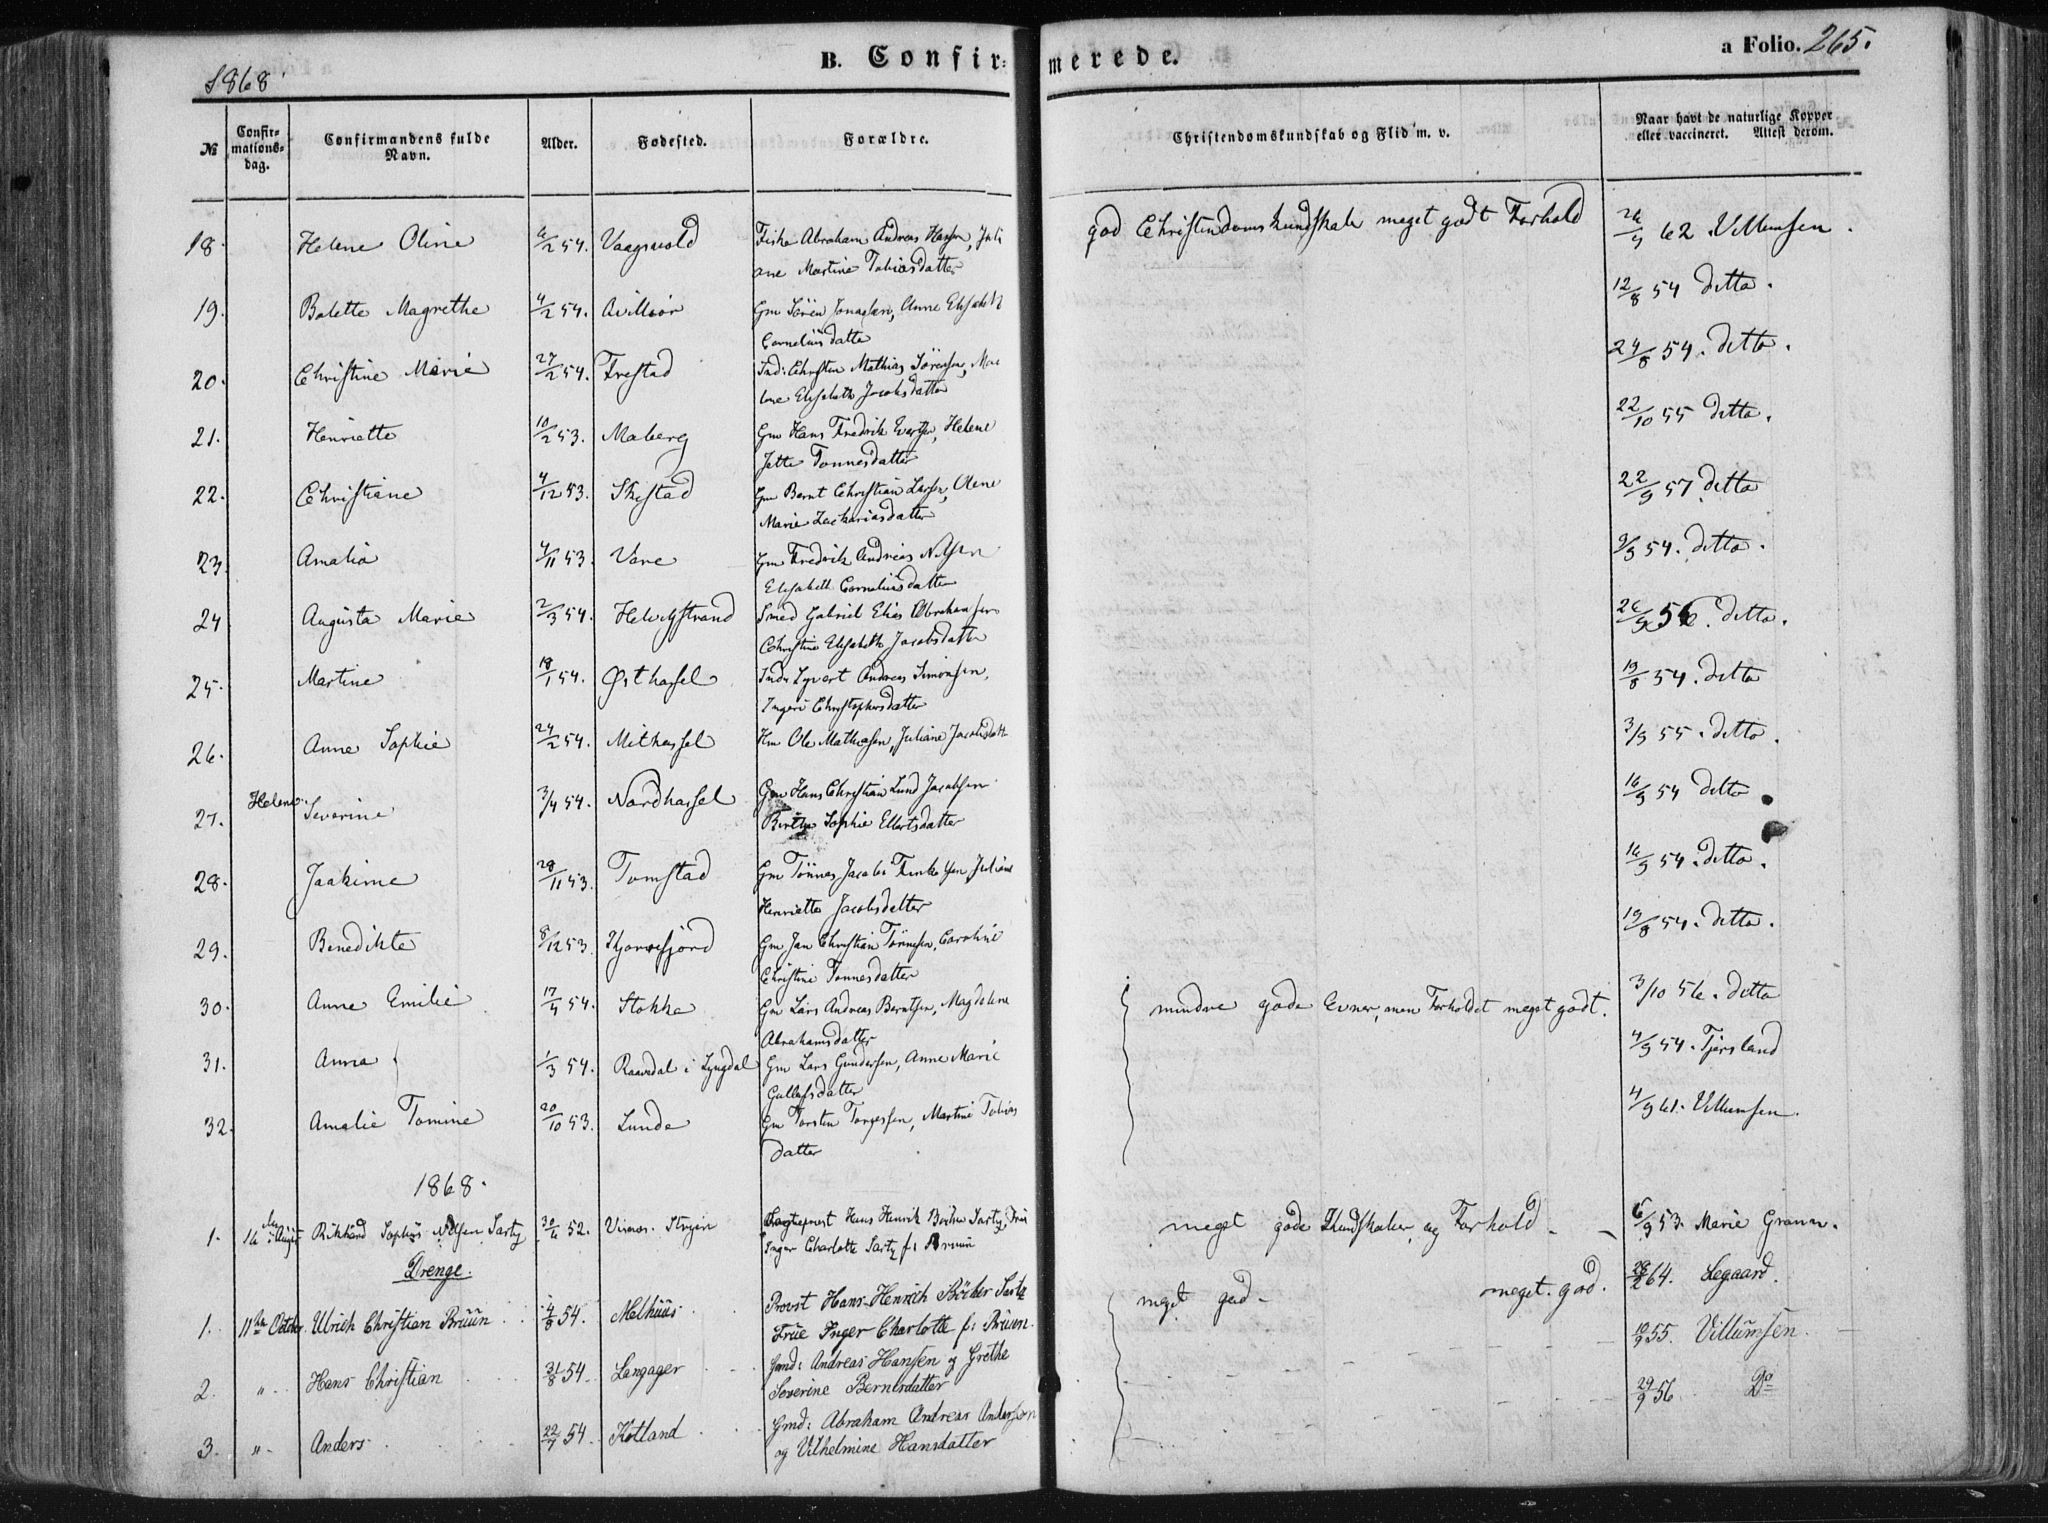 1868
B. Confirmerede.
a Folio. 265.
№
Confirmationsdag.
Confirmandens fulde Navn.
Alder.
Fødested.
Forældre.
Christendomskundskab og Flid m. v.
Naar havt de naturlige Kopper eller vaccineret. Attest derom.
18. Helene Oline 6/2 54. Vaagsvold Abraham Andreas Hansen, Juli god Christendomskundskab meget godt Forhold 26/9 62 Villumsen.
ane Martine Tobiasdatter
19. Bolette Magrethe 4/2 54. Gm Sören Jonassen, Anne Elisabeth 12/8 54 ditto.
Corneliusdatter
20. Christine Marie 27/2 54. Frestad Ind: Christen Mathias Sörensen, Ma 24/8 54. ditto.
lene Elisabeth Jacobsdatter
21. Henriette 10/2 53. Maberg Gm Hans Fredrik Evertsen, Helene 22/10 55 ditto.
Jette Tonnesdatter
22. Christiane 4/12 53. Skestad Gm Bernt Christian Larsen, Olene 22/9 57 ditto
Marie Zachariasdatter
23. Amalia 4/11 53. Vere Gm Fredrik Andreas Nilsen 9/9 54. ditto.
Elisabeth Corneliusdatter
24 Augusta Marie 2/3 54. Helvigstrand Smed Gabriel Elias Abrahamsen 26/9 56. ditto.
Christine Elisabeth Jacobsdatter
25. Martine 18/1 54. Østhassel Ind: Syvert Andreas Simonsen, 19/8 54. ditto
Ingeri Christophersdatter
26. Anne Sophie 24/2 54. Mithassel Hm Ole Mathiesen, Juliane Jacobsdatt 3/9 55. ditto.
27. Helene Severine 3/4 54. Nordhassel Gm Hans Christian Lund Jacobsen 16/9 54 ditto
Birthe Sophie Ellertsdatter
28. Joakime 28/11 53. Tomstad Gm Tönnes Jacob Juliane 16/9 54. ditto.
Henriette Jacobsdatter
29. Benedikte 8/12 53. Gm Jan Christian Tönnesen, Caroline 19/8 54. ditto.
Christine Tonnesdatter
30. Anne Emilie 17/4 54. Stokke Gm Lars Andreas Berntsen, Magdelene mindre gode Evner, men Forholdet meget godt. 3/10 56. ditto
Abrahamsdatter
31. Anna 1/3 54. Raavdal i Lyngdal Gm Lars Gundersen, Anne Marie 4/9 54. Tjersland
Gullefsdatter
32. Amalie Tomine 20/10 53. Lunde Gm Torsten Torgersen, Martine Tobias 4/9 61. Villumsen.
datter
1868.
1. 16 August Rikhard Sophus Nilsen Sartz 30/6 52. Stryn Sogneprest Hans Henrik Böcher Sartz, Frue meget gode Kundskaber, og Forhold 6/9 53. Marie Grann.
Inger Charlotte Sartz f: Bruun
Drenge.
1. 11te October Ulrich Christian Brüün 4/8 54. Melhüüs Provst Hans Henrich Böcher Sartz meget god - meget god. 28/2 64. Legaard.
Früe Inger Charlotte f: Brüun.
2. " Hans Christian 31/8 54. Langager Gmd: Andreas Hansen og Grethe 10/9 55. Villumsen.
Severine Berntsdatter
3. " Anders 22/7 54. Kotland Gmd: Abraham Andreas Andersen 29/9 56 Do
og Vilhelmine Hansdatter